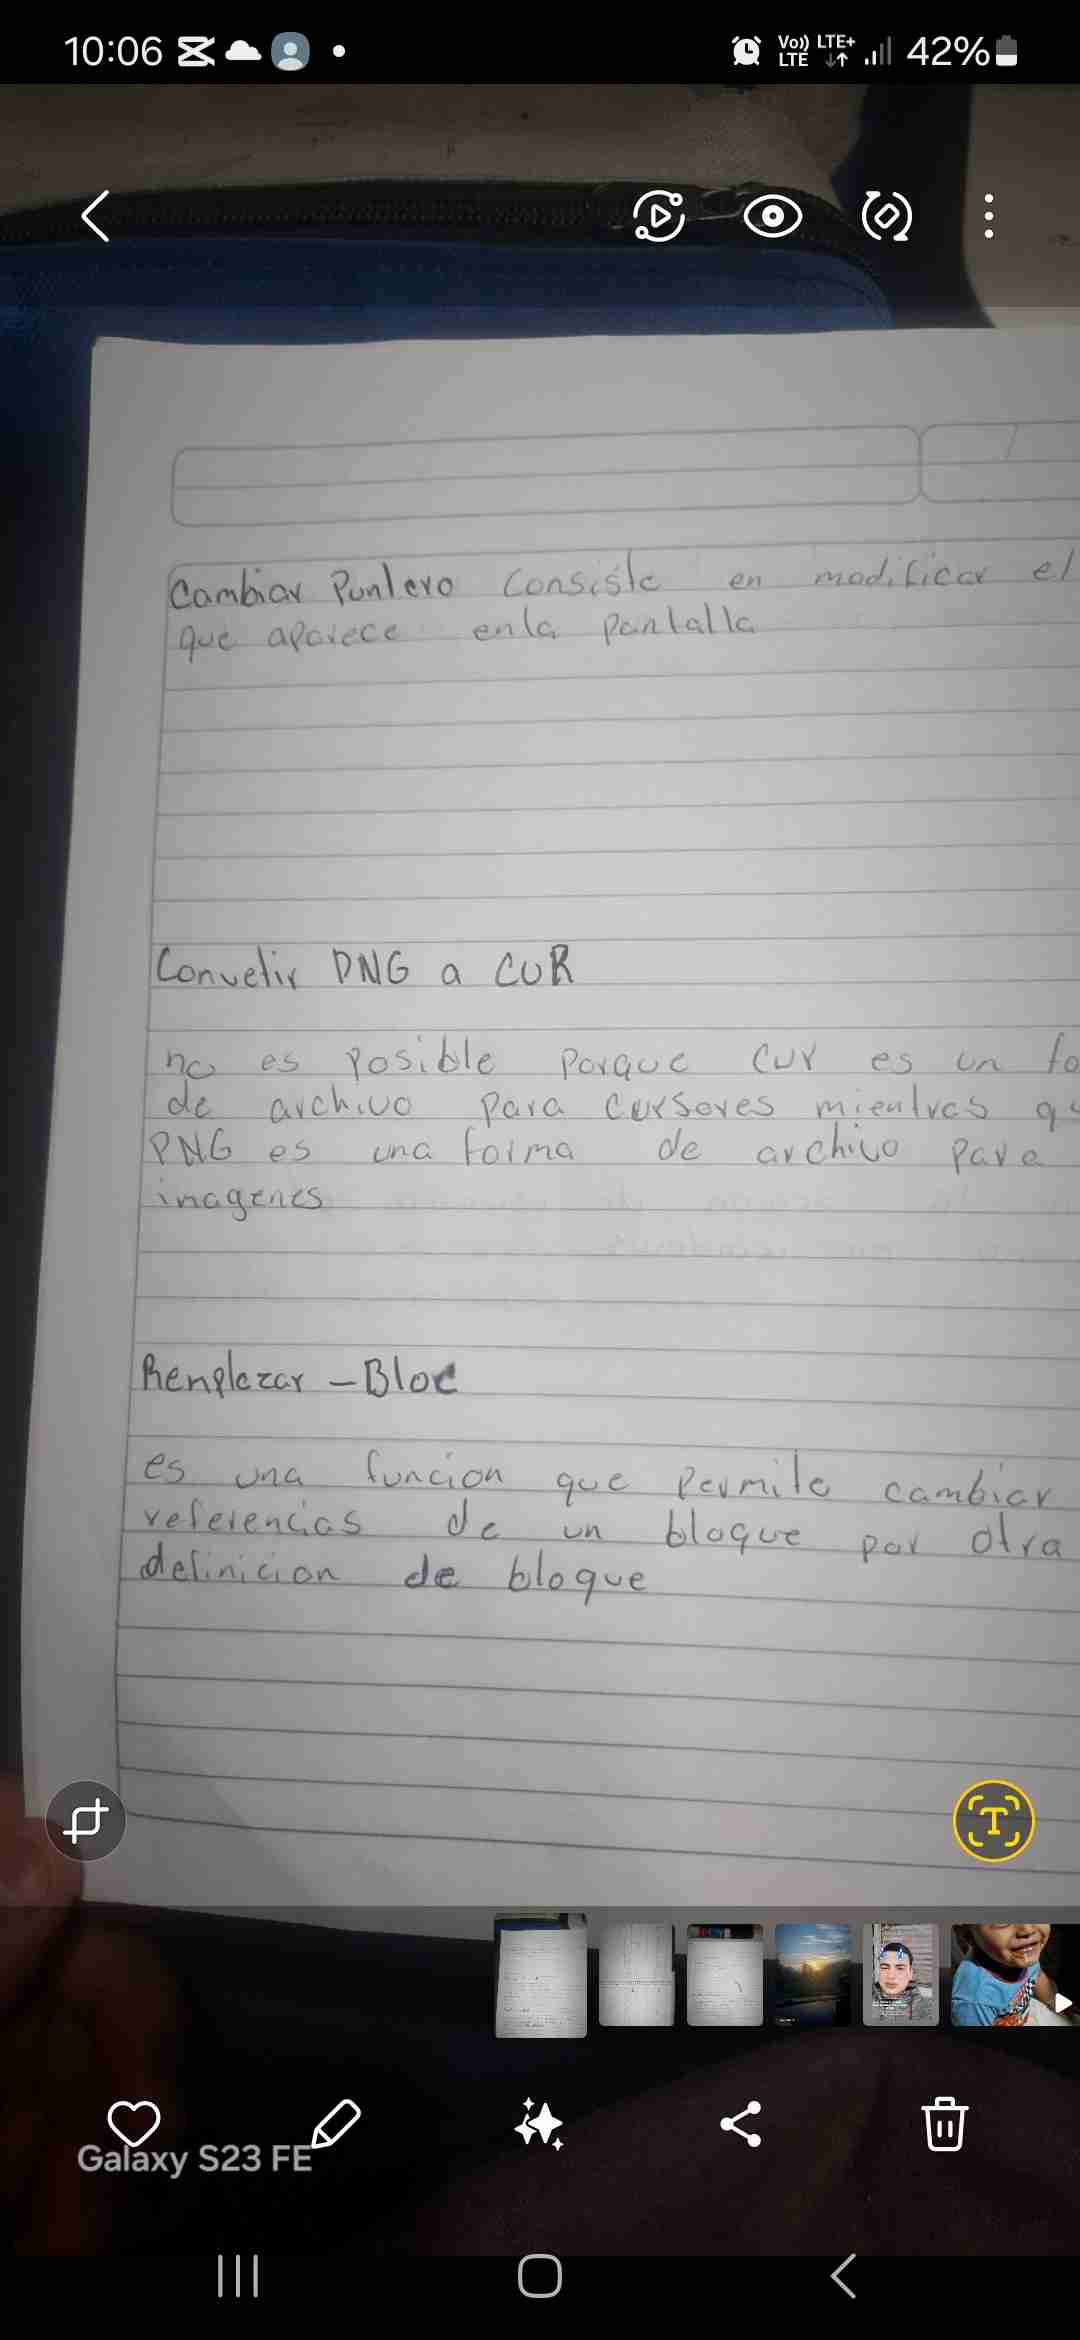 10:06
Vo)) LTE LTE+ 42%
Cambiar Puntero Consiste en modificar el
que aparece en la pantalla
Convetir PNG a CUR
no es posible porque cur es un fo
de archivo para cursores mientras qu
PNG es una forma de archivo para
inagenes
Renplazar - Bloc
es una funcion que permite cambiar
referencias de un bloque por otra
definicion de bloque
T
Galaxy S23 FE